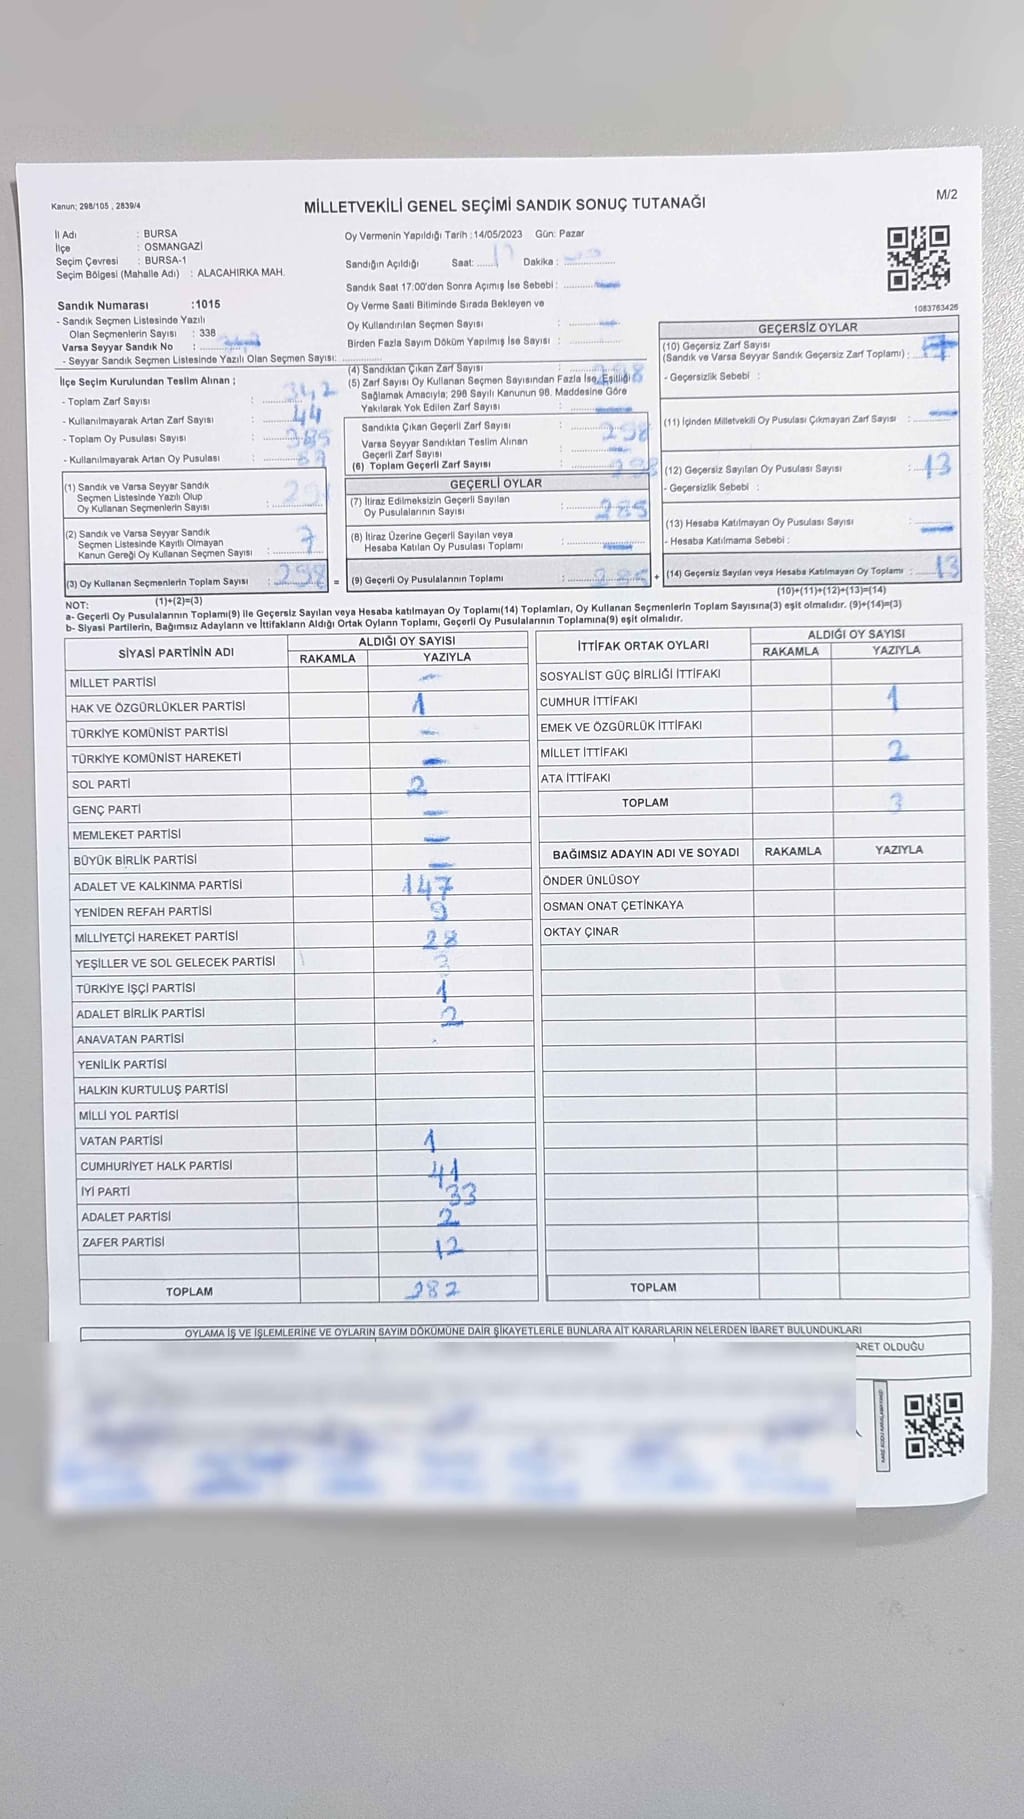 Kanun; 298/105 , 2839/4
MİLLETVEKİLİ GENEL SEÇİMİ SANDIK SONUÇ TUTANAĞI
M/2
İl Adı : BURSA
İlçe : OSMANGAZİ
Seçim Çevresi : BURSA-1
Seçim Bölgesi (Mahalle Adı) : ALACAHIRKA MAH.
Sandık Numarası :1015
- Sandık Seçmen Listesinde Yazılı
Olan Seçmenlerin Sayısı : 338
Varsa Seyyar Sandık No :
- Seyyar Sandık Seçmen Listesinde Yazılı Olan Seçmen Sayısı:
Oy Vermenin Yapıldığı Tarih :14/05/2023 Gün: Pazar
Sandığın Açıldığı Saat: 17 Dakika :
Sandık Saat 17:00'den Sonra Açımış İse Sebebi :
Oy Verme Saati Bitiminde Sırada Bekleyen ve
Oy Kullandırılan Seçmen Sayısı :
Birden Fazla Sayım Döküm Yapılmış İse Sayısı :
1083763426
İlçe Seçim Kurulundan Teslim Alınan ;
- Toplam Zarf Sayısı : 342
- Kullanılmayarak Artan Zarf Sayısı : 44
- Toplam Oy Pusulası Sayısı : 385
- Kullanılmayarak Artan Oy Pusulası :
(1) Sandık ve Varsa Seyyar Sandık
Seçmen Listesinde Yazılı Olup
Oy Kullanan Seçmenlerin Sayısı : 291
(2) Sandık ve Varsa Seyyar Sandık
Seçmen Listesinde Kayıtlı Olmayan
Kanun Gereği Oy Kullanan Seçmen Sayısı : 7
(3) Oy Kullanan Seçmenlerin Toplam Sayısı : 298 =
(1)+(2)=(3)
(4) Sandıktan Çıkan Zarf Sayısı : 298
(5) Zarf Sayısı Oy Kullanan Seçmen Sayısından Fazla İse, Eşitliği
Sağlamak Amacıyla; 298 Sayılı Kanunun 98. Maddesine Göre
Yakılarak Yok Edilen Zarf Sayısı :
Sandıkta Çıkan Geçerli Zarf Sayısı : 298
Varsa Seyyar Sandıktan Teslim Alınan
Geçerli Zarf Sayısı :
(6) Toplam Geçerli Zarf Sayısı : 298
GEÇERLİ OYLAR
(7) İtiraz Edilmeksizin Geçerli Sayılan
Oy Pusulalarının Sayısı : 285
(8) İtiraz Üzerine Geçerli Sayılan veya
Hesaba Katılan Oy Pusulası Toplamı :
(9) Geçerli Oy Pusulalarının Toplamı : 285 +
GEÇERSİZ OYLAR
(10) Geçersiz Zarf Sayısı
(Sandık ve Varsa Seyyar Sandık Geçersiz Zarf Toplamı) :
- Geçersizlik Sebebi :
(11) İçinden Milletvekili Oy Pusulası Çıkmayan Zarf Sayısı :
(12) Geçersiz Sayılan Oy Pusulası Sayısı : 13
- Geçersizlik Sebebi :
(13) Hesaba Katılmayan Oy Pusulası Sayısı :
- Hesaba Katılmama Sebebi :
(14) Geçersiz Sayılan veya Hesaba Katılmayan Oy Toplamı : 13
(10)+(11)+(12)+(13)=(14)
NOT:
a- Geçerli Oy Pusulalarının Toplamı(9) ile Geçersiz Sayılan veya Hesaba katılmayan Oy Toplamı(14) Toplamları, Oy Kullanan Seçmenlerin Toplam Sayısına(3) eşit olmalıdır. (9)+(14)=(3)
b- Siyasi Partilerin, Bağımsız Adayların ve İttifakların Aldığı Ortak Oyların Toplamı, Geçerli Oy Pusulalarının Toplamına(9) eşit olmalıdır.
SİYASİ PARTİNİN ADI ALDIĞI OY SAYISI
RAKAMLA YAZIYLA
MİLLET PARTİSİ -
HAK VE ÖZGÜRLÜKLER PARTİSİ 1
TÜRKİYE KOMÜNİST PARTİSİ -
TÜRKİYE KOMÜNİST HAREKETİ -
SOL PARTİ 2
GENÇ PARTİ -
MEMLEKET PARTİSİ -
BÜYÜK BİRLİK PARTİSİ -
ADALET VE KALKINMA PARTİSİ 147
YENİDEN REFAH PARTİSİ 9
MİLLİYETÇİ HAREKET PARTİSİ 28
YEŞİLLER VE SOL GELECEK PARTİSİ 3
TÜRKİYE İŞÇİ PARTİSİ 1
ADALET BİRLİK PARTİSİ 2
ANAVATAN PARTİSİ
YENİLİK PARTİSİ
HALKIN KURTULUŞ PARTİSİ
MİLLİ YOL PARTİSİ
VATAN PARTİSİ 1
CUMHURİYET HALK PARTİSİ 41
İYİ PARTİ 33
ADALET PARTİSİ 2
ZAFER PARTİSİ 12
TOPLAM 282
İTTİFAK ORTAK OYLARI ALDIĞI OY SAYISI
RAKAMLA YAZIYLA
SOSYALİST GÜÇ BİRLİĞİ İTTİFAKI
CUMHUR İTTİFAKI 1
EMEK VE ÖZGÜRLÜK İTTİFAKI
MİLLET İTTİFAKI 2
ATA İTTİFAKI
TOPLAM 3
BAĞIMSIZ ADAYIN ADI VE SOYADI RAKAMLA YAZIYLA
ÖNDER ÜNLÜSOY
OSMAN ONAT ÇETİNKAYA
OKTAY ÇINAR
TOPLAM
OYLAMA İŞ VE İŞLEMLERİNE VE OYLARIN SAYIM DÖKÜMÜNE DAİR ŞİKAYETLERLE BUNLARA AİT KARARLARIN NELERDEN İBARET BULUNDUKLARI
ARET OLDUĞU